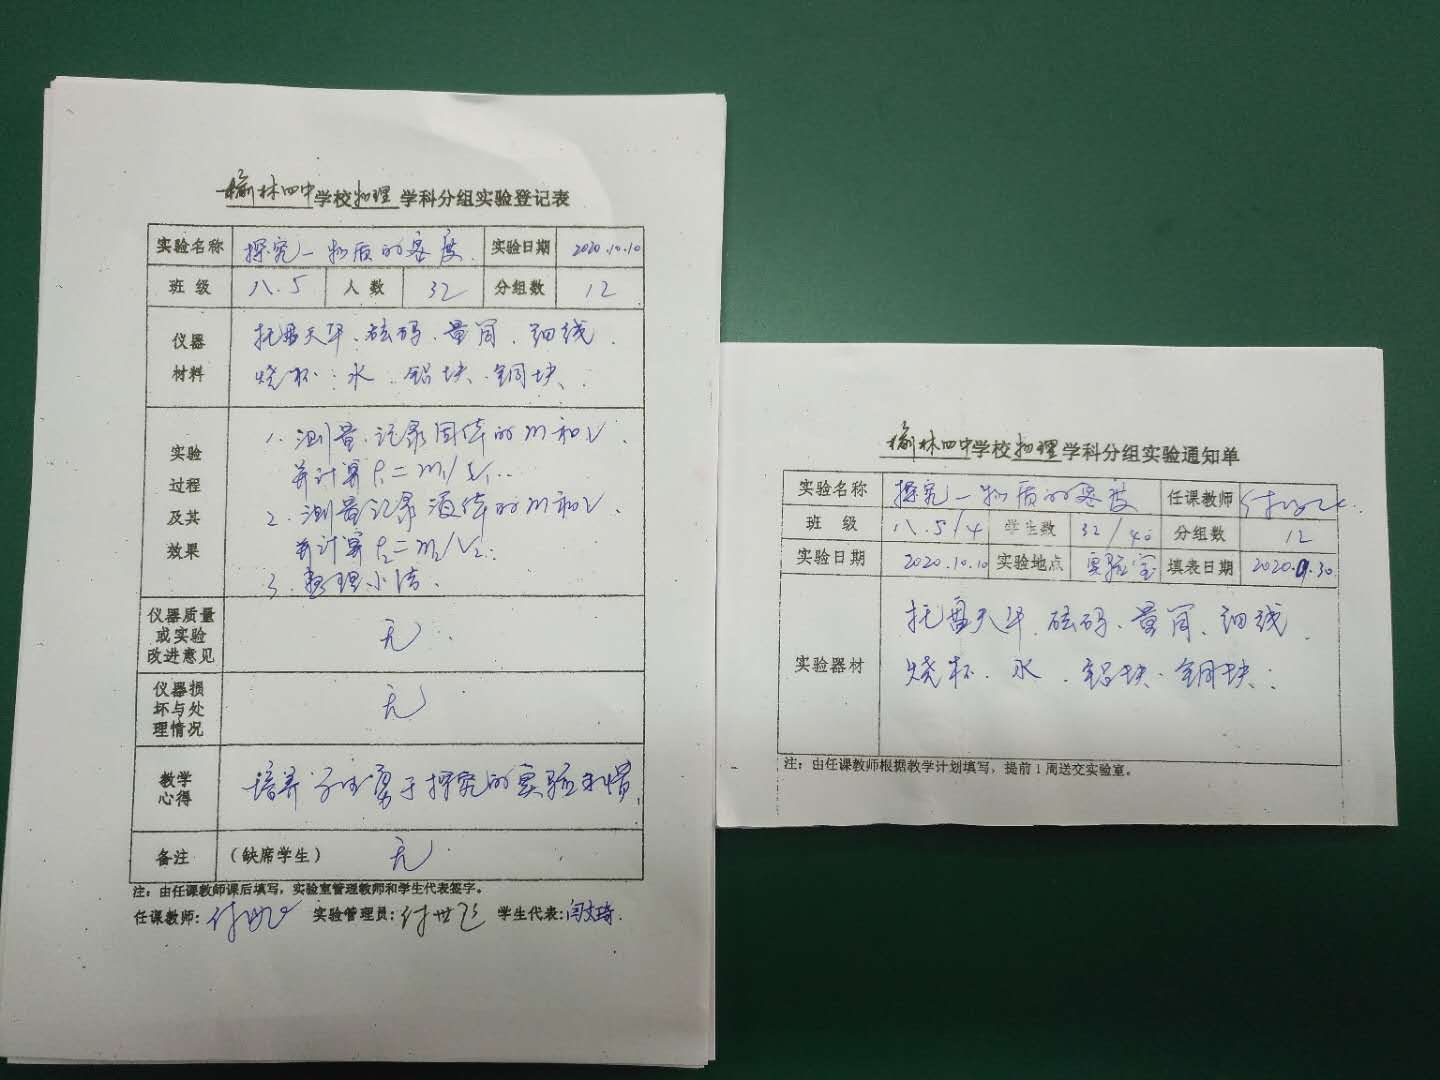 榆林四中学校物理学科分组实验登记表
实验名称 探究一物质的密度 实验日期 2020.10.10
班 级 八.5 人 数 32 分组数 12
仪器材料 托盘天平、砝码、量筒、细线、
烧杯、水、铝块、铜块、
实验过程及其效果 1.测量、记录固体的m和V、
并计算ρ₁=m₁/V₁.
2.测量记录液体的m和V、
并计算ρ₂=m₂/V₂.
3.整理小结.
仪器质量或实验改进意见 无.
仪器损坏与处理情况 无
教学心得 培养学生勇于探究的实验习惯
备注 (缺席学生) 无
注:由任课教师课后填写,实验室管理教师和学生代表签字。
任课教师: 付世飞 实验管理员:付世飞 学生代表:闫文琦.
榆林四中学校物理学科分组实验通知单
实验名称 探究一物质的密度 任课教师 付世飞
班 级 八.5/4 学生数 32/40 分组数 12
实验日期 2020.10.10 实验地点 实验室 填表日期 2020.9.30
实验器材 托盘天平、砝码、量筒、细线、
烧杯、水、铝块、铜块、
注:由任课教师根据教学计划填写,提前1周送交实验室。